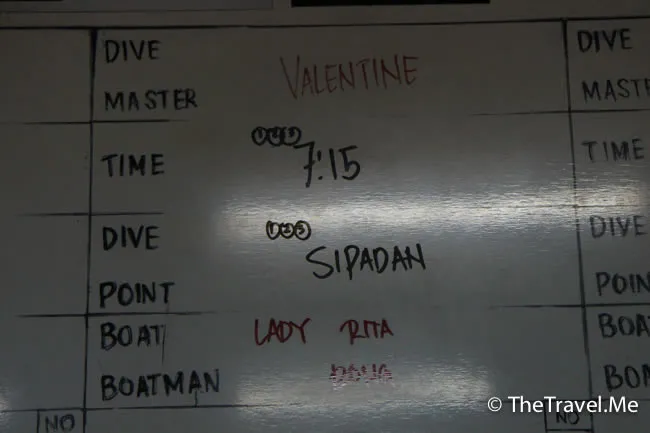 DIVE
MASTER
VALENTINE
TIME
①②③
7:15
DIVE
POINT
①②③
SIPADAN
BOAT
LADY RITA
BOATMAN
NO
DIVE
MAST
TIME
DIVE
POIN
BOA
BOA
NO
© TheTravel.Me